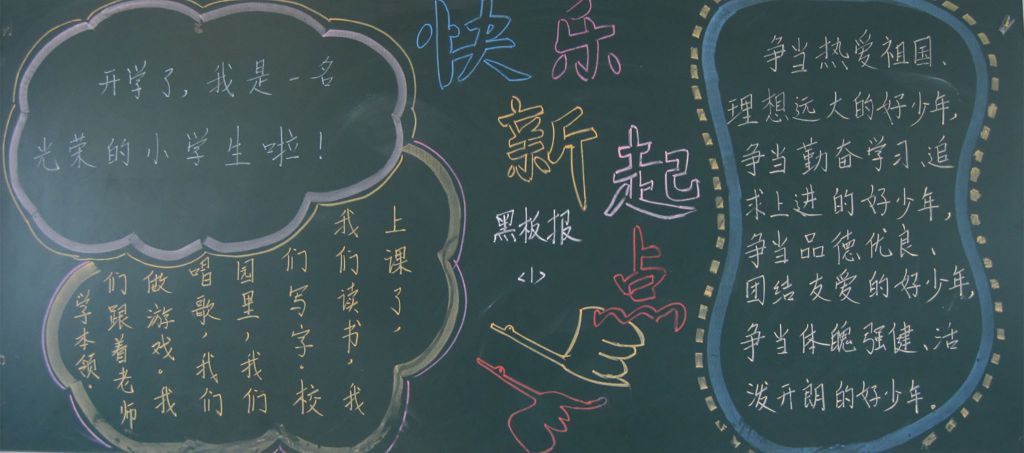 开学了，我是一名
光荣的小学生啦！
上课了，
我们读书，我
们写字。校
园里，我们
唱歌，我们
做游戏。我
们跟着老师
学本领。
快乐
新起
点
黑板报
<1>
争当热爱祖国、
理想远大的好少年，
争当勤奋学习、追
求上进的好少年，
争当品德优良、
团结友爱的好少年，
争当体魄强健、活
泼开朗的好少年。